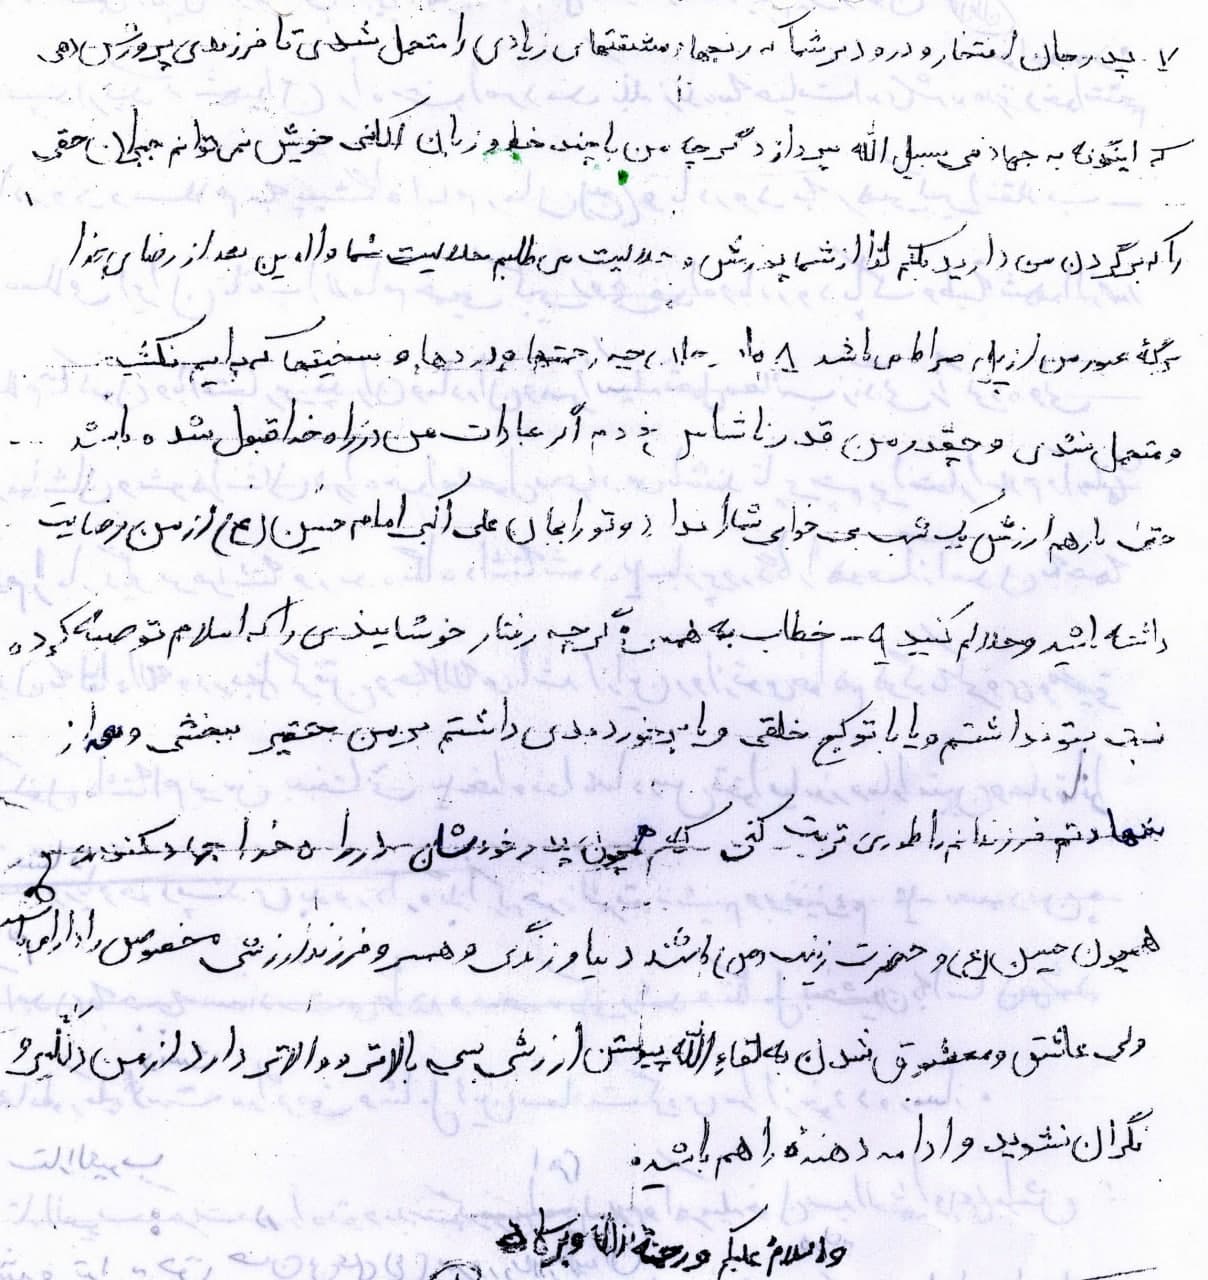 ۷- پدر جان افتخار و درود بر شما که رنجها و مشقتهای زیادی را متحمل شدی تا فرزندی پرورش دهی
که اینگونه به جهاد فی سبیل الله بپردازد گرچه من با چند خط و زبان الکنی خویش نمی توانم جبران حقی
را که برگردن من دارید بکنم لذا از شما پوزش و حلالیت می طلبم حلالیت شما والدین بعد از رضای خدا
برگه عبور من از پل صراط می باشد ۸- مادر چه زحمتها و دردها و سختیها که برایم نکشیدی
و متحمل نشدی و چقدر من قدر ناشناس بودم اگر عبادات من در راه خدا قبول شده باشد
حتی باز هم ارزش یک شب بی خوابی شما را ندارد و تو را بجان علی اکبر امام حسین (ع) از من رضایت
داشته باشید و حلالم کنید ۹- خطاب به همسرم گرچه رفتار خوشایندی را که اسلام توصیه کرده
نسبت بتو نداشتم و یا با تو کج خلقی و یا برخورد بدی داشتم بر من حقیر ببخشی و بعد از
شهادتم فرزندانم را طوری تربیت کنی که همچون پدر خودشان در راه خدا جهاد کنند و
همچون حسین (ع) و حضرت زینب (س) باشند دنیا و زندگی و همسر و فرزند ارزشی مخصوص را دارا می باشد
ولی عاشق و معشوق شدن به لقاء الله پیوستن ارزشی بسی بالاتر و والاتر دارد از من دلگیر و
نگران نشوید و ادامه دهنده راهم باشید.
والسلام علیکم و رحمة الله و برکاته